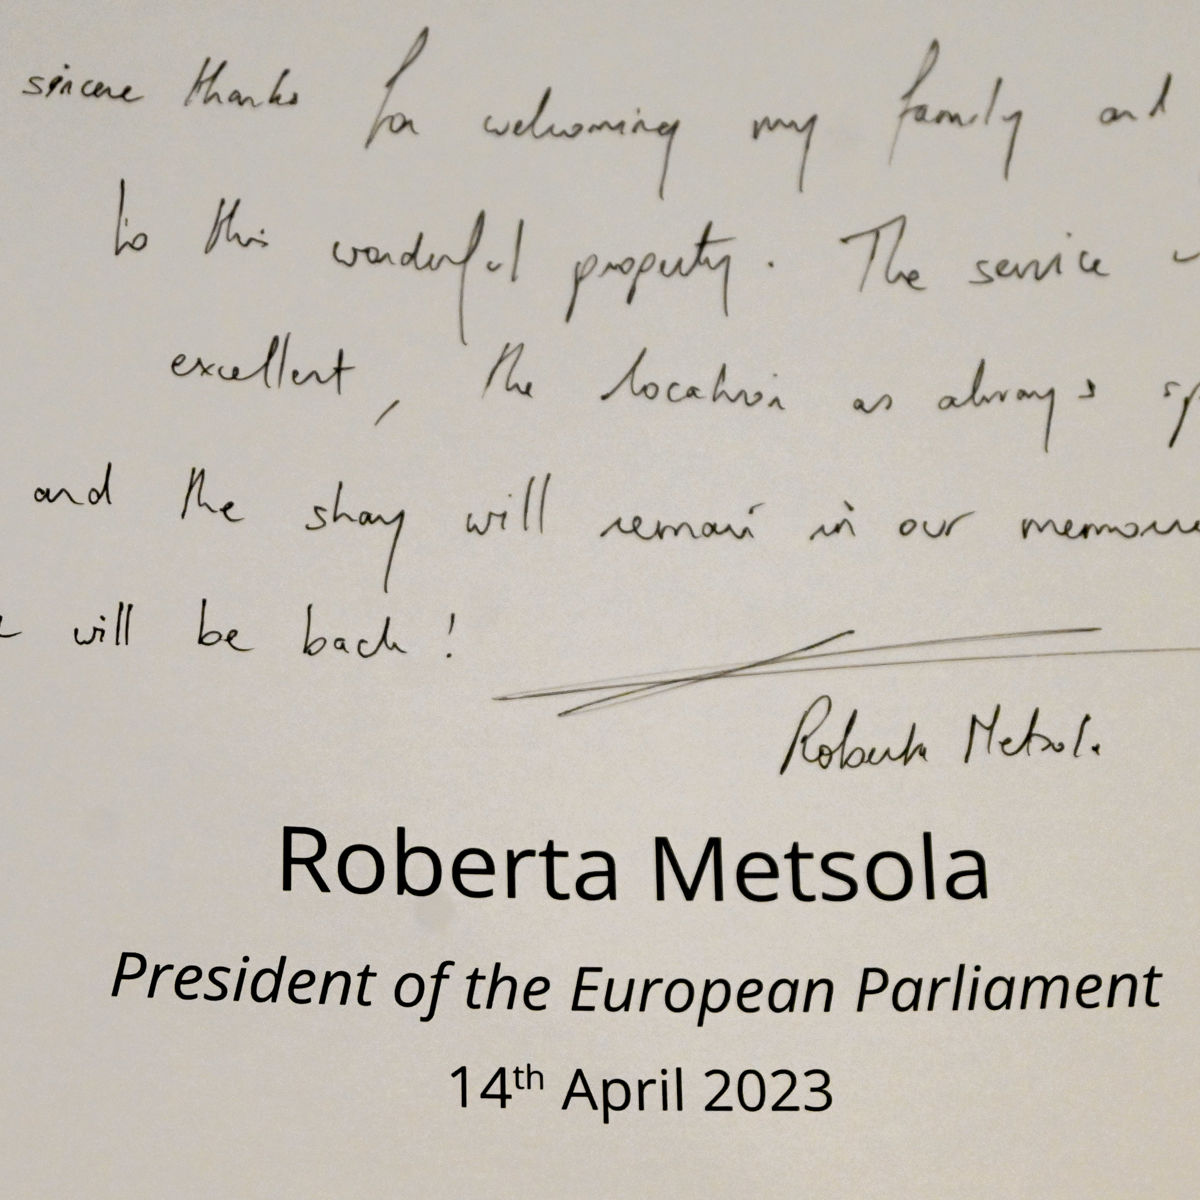 sincere thanks for welcoming my family and
to this wonderful property. The service
excellent, the location as always
and the stay will remain in our
will be back!
Roberta Metsola
Roberta Metsola
President of the European Parliament
14th April 2023